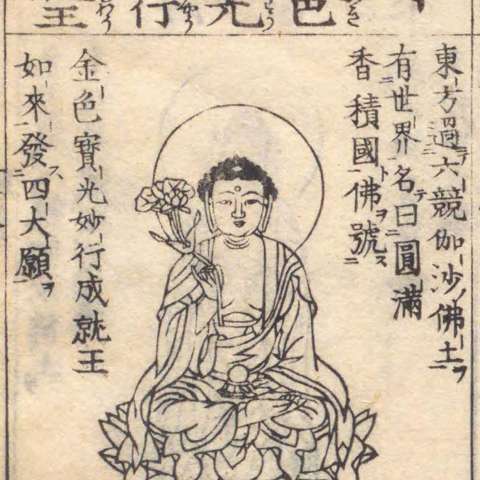 色光行
東方過六競伽沙佛土
有世界名曰圓滿
香積國佛號
金色寶光妙行成就王
如來發四大願